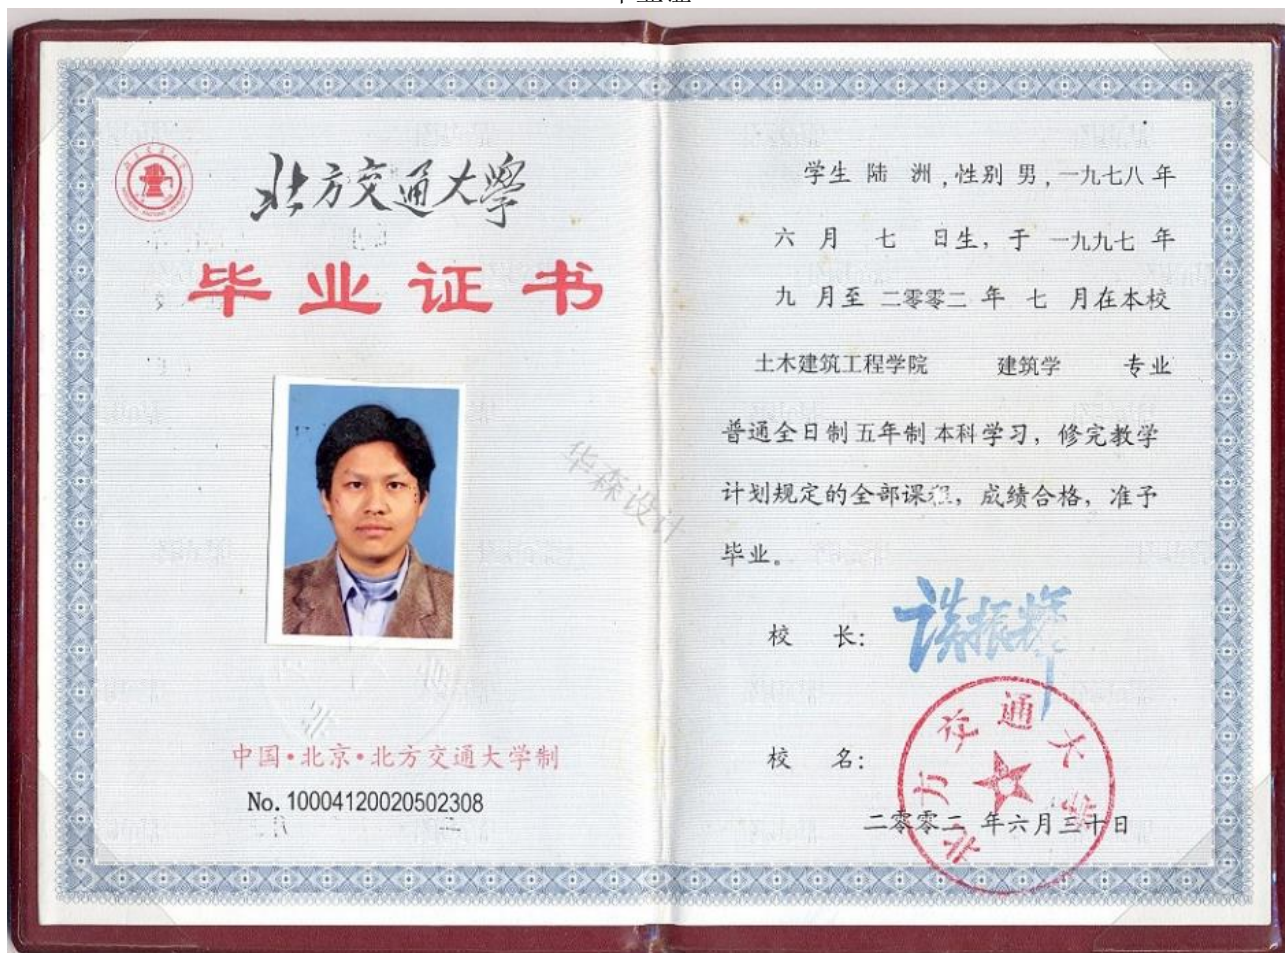 北方交通大學
毕业证书
中国·北京·北方交通大学制
No. 10004120020502308
华森设计
学生 陆 洲 ,性别 男 ,一九七八 年
六 月 七 日生, 于 一九九七 年
九 月至 二零零二 年 七 月在本校
土木建筑工程学院 建筑学 专业
普通全日制五年制本科学习, 修完教学
计划规定的全部课程, 成绩合格, 准予
毕业。
校 长: 谈振辉
校 名:
北方交通大学
二零零二 年六月三十日